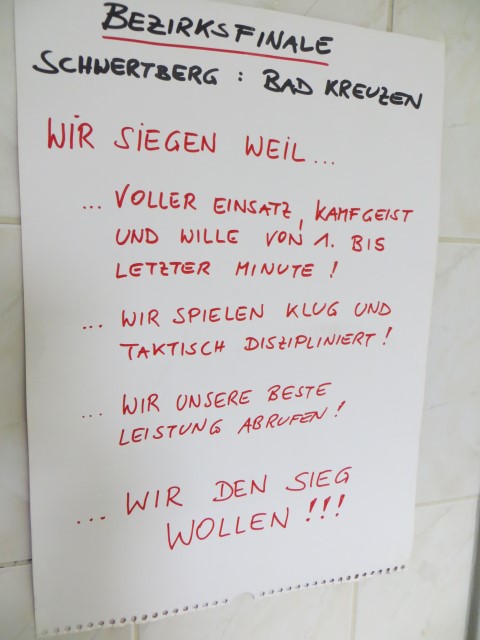 BEZIRKSFINALE
SCHWERTBERG : BAD KREUZEN
WIR SIEGEN WEIL...
... VOLLER EINSATZ, KAMFGEIST
UND WILLE VON 1. BIS
LETZTER MINUTE!
... WIR SPIELEN KLUG UND
TAKTISCH DISZIPLINIERT!
... WIR UNSERE BESTE
LEISTUNG ABRUFEN!
... WIR DEN SIEG
WOLLEN!!!